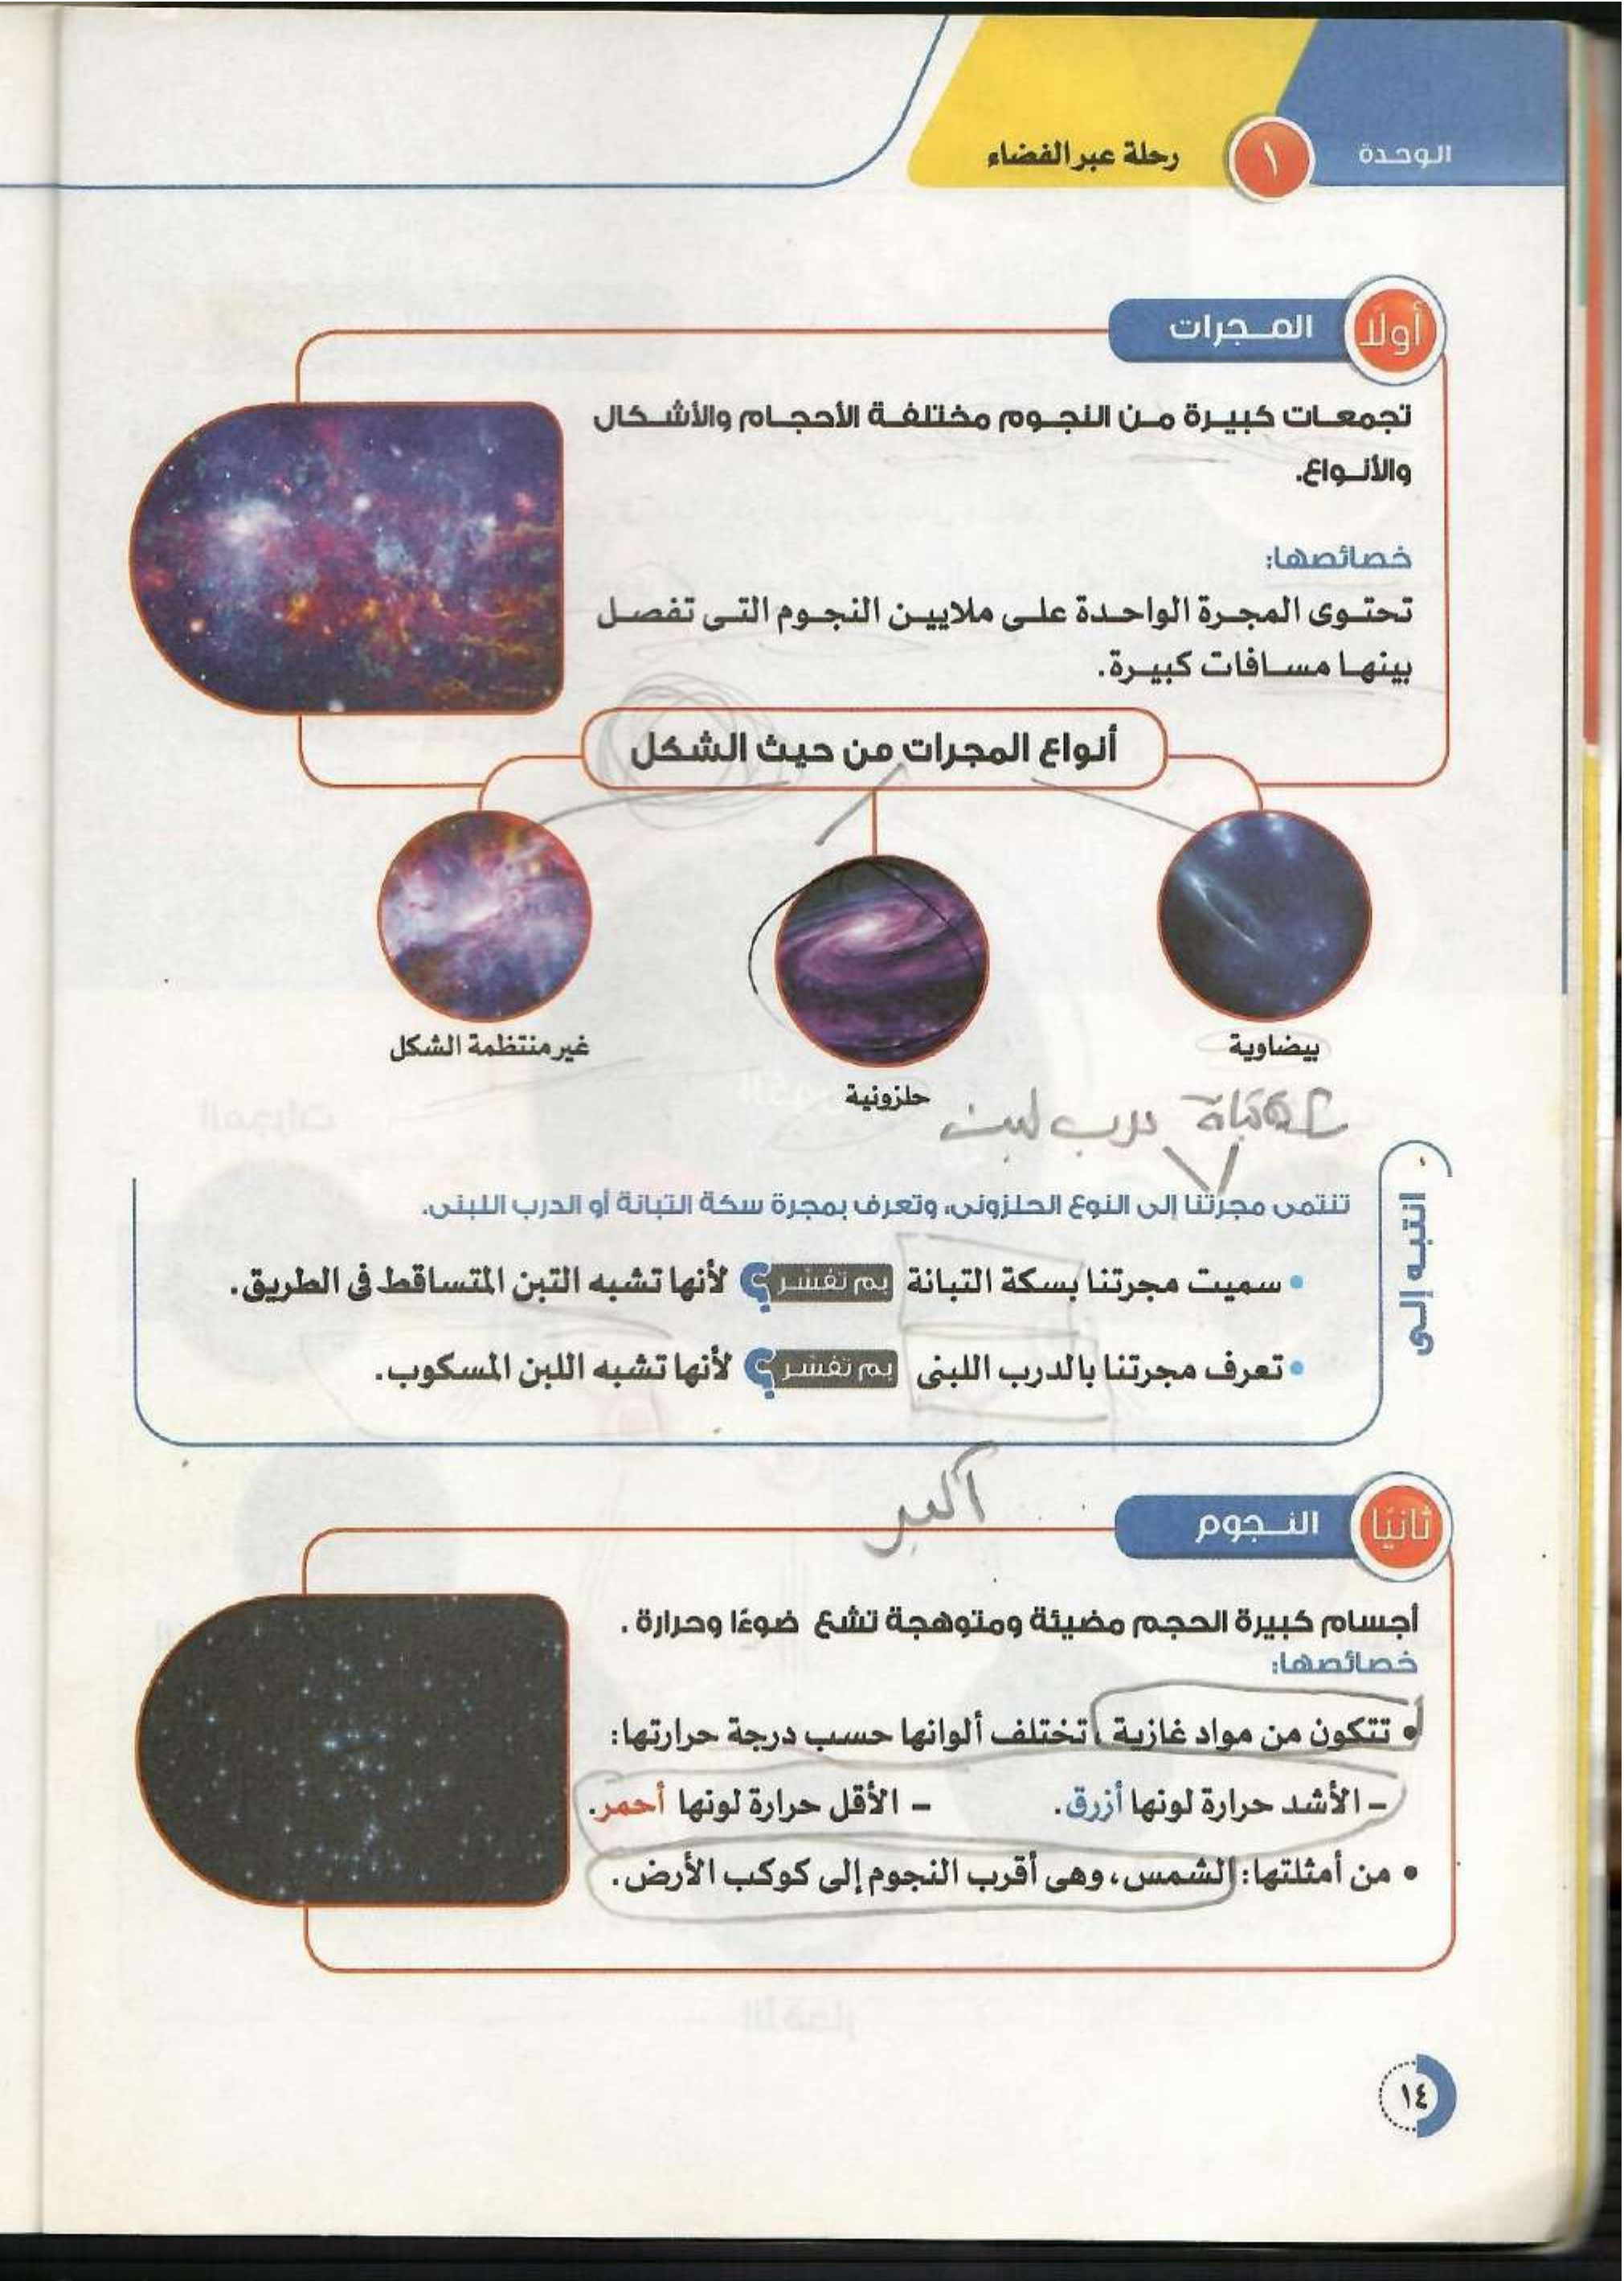 الوحدة ١ رحلة عبر الفضاء
أولًا المجرات
تجمعات كبيرة من النجوم مختلفة الأحجام والأشكال
والأنواع.
خصائصها:
تحتوى المجرة الواحدة على ملايين النجوم التى تفصل
بينها مسافات كبيرة.
أنواع المجرات من حيث الشكل
بيضاوية
حلزونية
غير منتظمة الشكل
درب لبن
انتبه إلى
تنتمى مجرتنا إلى النوع الحلزونى، وتعرف بمجرة سكة التبانة أو الدرب اللبنى.
• سميت مجرتنا بسكة التبانة بم تفسر؟ لأنها تشبه التبن المتساقط فى الطريق.
• تعرف مجرتنا بالدرب اللبنى بم تفسر؟ لأنها تشبه اللبن المسكوب.
أكبر
ثانيًا النجوم
أجسام كبيرة الحجم مضيئة ومتوهجة تشع ضوءًا وحرارة .
خصائصها:
• تتكون من مواد غازية ، تختلف ألوانها حسب درجة حرارتها:
- الأشد حرارة لونها أزرق. - الأقل حرارة لونها أحمر.
• من أمثلتها: الشمس، وهى أقرب النجوم إلى كوكب الأرض.
١٤